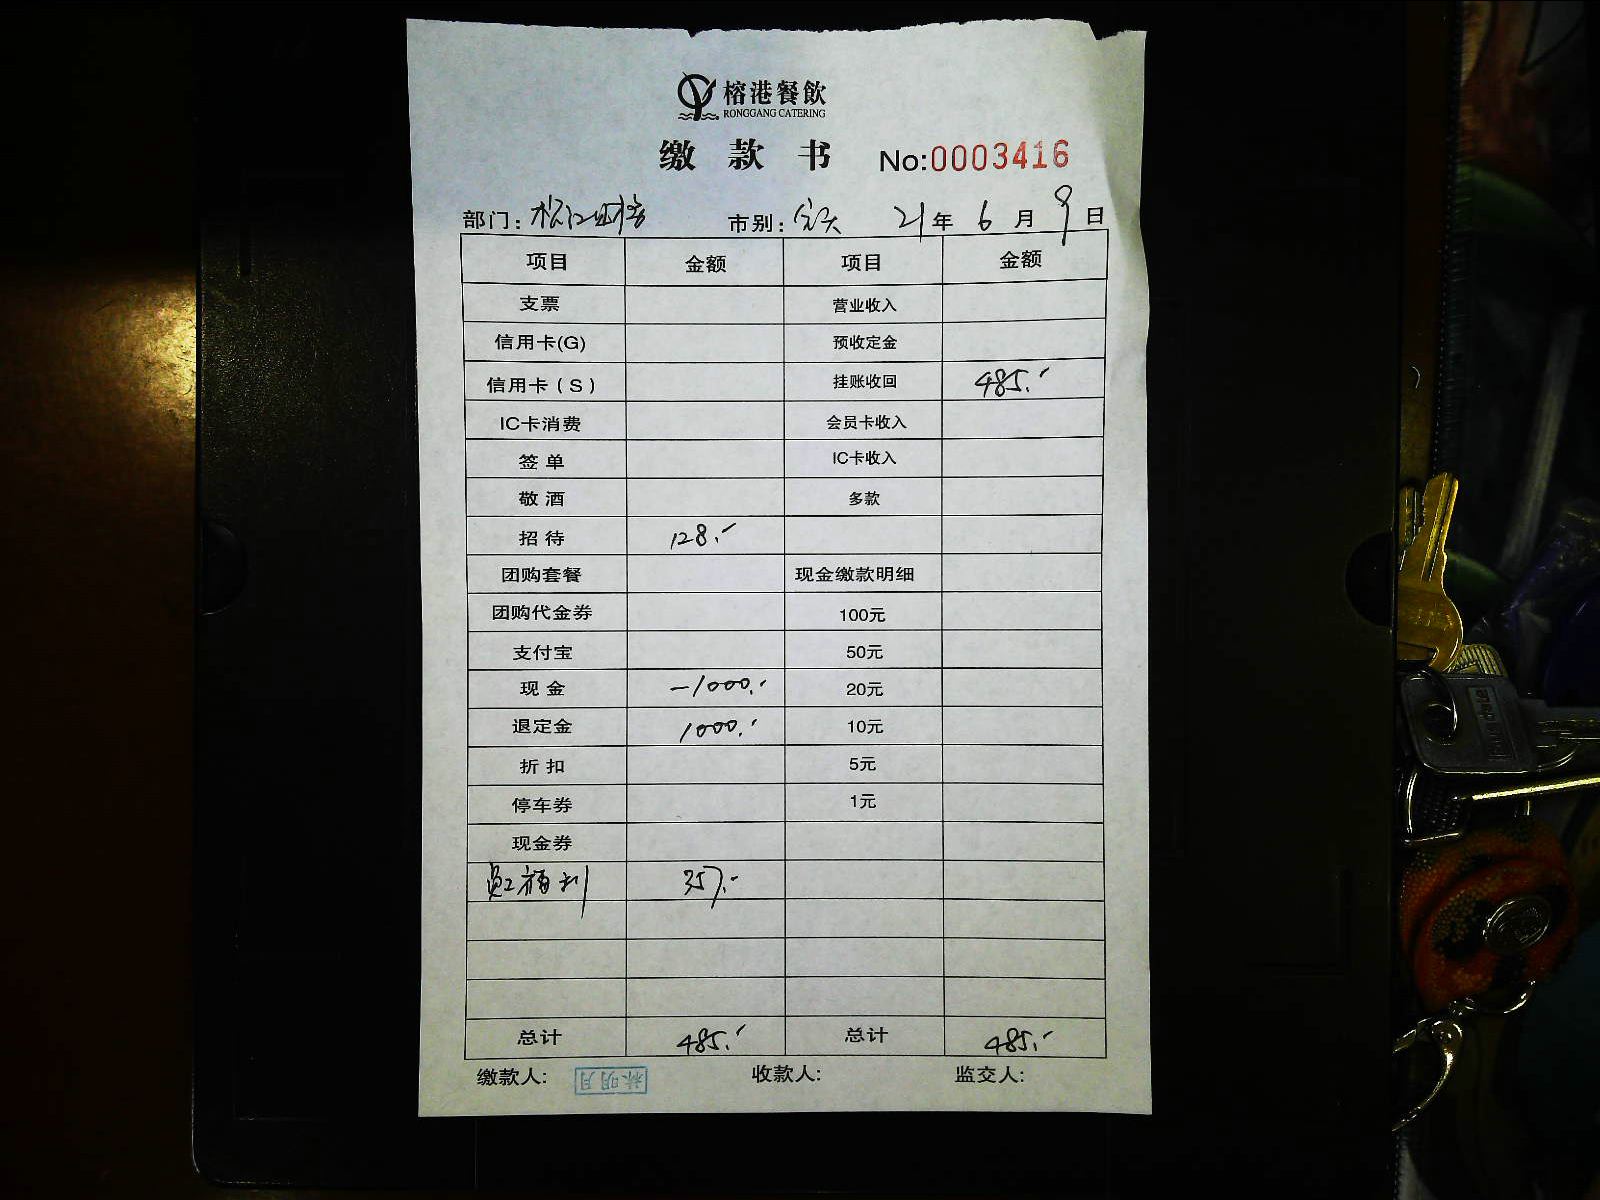 榕港餐飲
RONGGANG CATERING
缴款书 No:0003416
部门: 松江 市别: 全天 21年 6月 9日
项目 金额 项目 金额
支票 营业收入
信用卡(G) 预收定金
信用卡(S) 挂账收回 485.-
IC卡消费 会员卡收入
签单 IC卡收入
敬酒 多款
招待 128.-
团购套餐 现金缴款明细
团购代金券 100元
支付宝 50元
现金 -1000.- 20元
退定金 1000.- 10元
折扣 5元
停车券 1元
现金券
员工福利 357.-
总计 485.- 总计 485.-
缴款人: 林明月 收款人: 监交人: